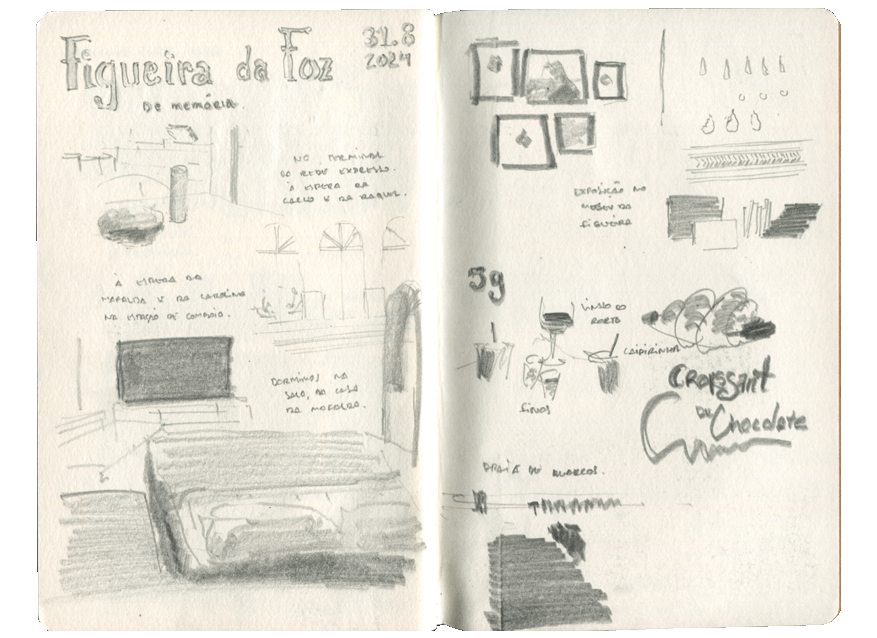 Figueira da Foz
31.8
2024
De memória.
No terminal
da Rede Expresso.
À espera da
e da Raquel.
À espera da
Mafalda e da Carolina
na estação de comboio.
Dormimos na
sala, na casa
da Mafalda.
Exposição no
Museu da
Figueira
Vinho do
Porto
Caipirinha
finos
Croissant
de
Chocolate
Praia de Buarcos.